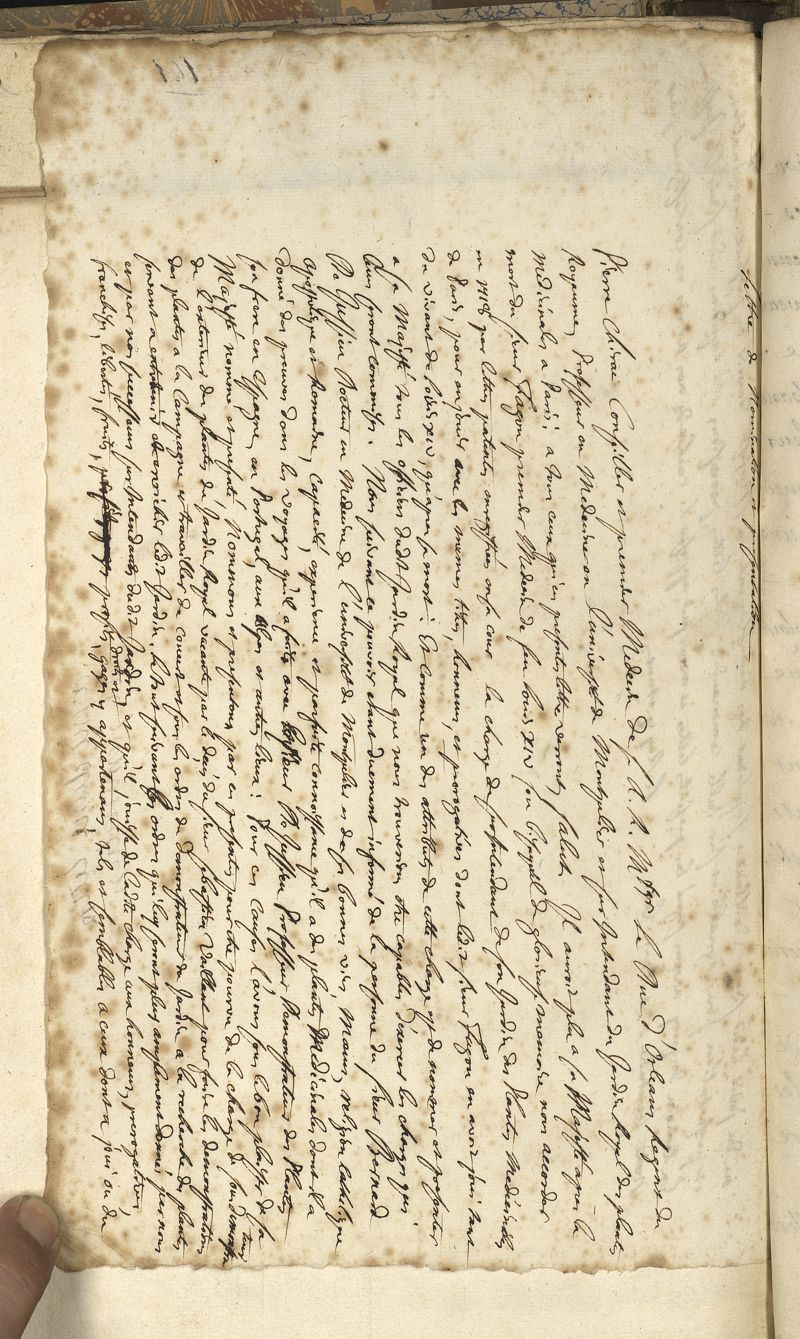 Lettre de Nomination et presentation
Pierre Chirac Conseiller et premier Medecin de S. A. R. Mgr Le Duc d'Orleans, Regent du
Royaume, Professeur en Medecine en l'université de Montpellier et sur Intendant du Jardin Royal des plantes
Medicinales a Paris: a tous ceux qui ces presentes lettres verront, salut. Il auroit plu a Sa Majesté apres la
mort du sieur Fagon premier Medecin de feu Louis XIV son bisayeul de glorieuse memoire nous accorder
en 1718 par lettres patentes en sa cour la charge de surintendant de son Jardin des Plantes Medicinales
de Paris, pour en jouir avec les mesmes titres, honneurs, et prerogatives dont ledit sieur Fagon en avoit joui tant
du vivant de Louis XIV, qu'apres sa mort: Et comme un des attributs de cette charge est de nommer et presenter
a Sa Majesté tous les officiers dudit Jardin Royal que nous trouverons etre capables d'exercer les charges qui
leur seront commises. Nous suivant ce pouvoir etant duement informé de la personne du sieur Bernard
De Jussieu Docteur en Medecine de l'université de Montpellier et de ses bonnes vies, Mœurs, religion catholique
apostolique et Romaine, capacité, experience et parfaite connoissance qu'il a des plantes Medicinales dont il a
donné des preuves dans les voyages qu'il a faits avec le sieur De Jussieu Professeur Demonstrateur des Plantes
son frere en Espagne, en Portugal, aux Alpes et autres lieux: Pour ces causes l'avons sous le bon plaisir de Sa
Majesté nommé et presenté, Nommons et presentons par ces presentes pour etre pourvu de la charge de
de l'exterieur des plantes du Jardin Royal vacante par le deces du sieur Sebastien Vaillant pour faire les demonstrations
des plantes a la Campagne et travailler de concert et sous les ordres du Demonstrateur du Jardin a la recherche des plantes
servant a enrichir ledit Jardin, le tout suivant les ordres qui luy seront plus amplement donnés par nous
et par nos successeurs surintendants dudit Jardin, et qu'il jouisse de ladite charge aux honneurs, prerogatives,
franchises, libertés, fruits, profits, droits et gages y appartenans, tels et semblables a ceux dont a joui ou du